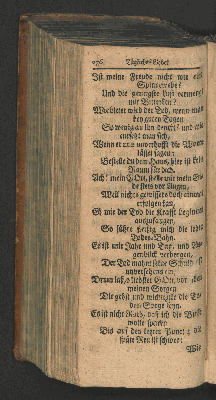 276 Tägliches Gebet
Ist meine Freude nicht wie eine
Spinnewebe?
Und die geringste Lust vermengt
mit Bitterkeit?
Wie bitter wird der Tod, wenn man
bey guten Tagen
So wenig an ihn denckt, und wie
entsetzt man sich,
Wenn er uns unverhofft die
lässet sagen:
Bestelle du dein Haus, hier ist kein
Raum für dich.
Ach! mein GOtt, stelle mir mein Ende
stets vor Augen,
Weil nichts gewissers doch einmal
erfolgen kan,
Eh mir der Tod die Krafft
auszusaugen,
So führe fleißig mich die
Todes-Bahn.
Es ist mir Jahr und Tag, und
genblick verborgen,
Der Tod mahnt seine Schuld
unversehens ein,
Drum laß, o liebster GOtt, vor
meinen Sorgen
Die gröst und wichtigste die
des Sorge seyn.
Es ist nicht Rath, daß ich die
wolte sparen
Bis auf den letzten Punct;
späte Reu ist schwer:
Wie